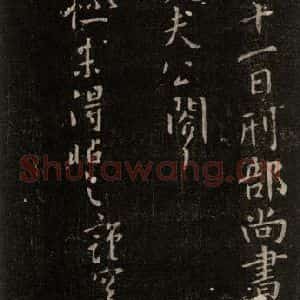 十一日刑部尚書
夫公閣下
未得帖之謹空
Shufawang.Cn